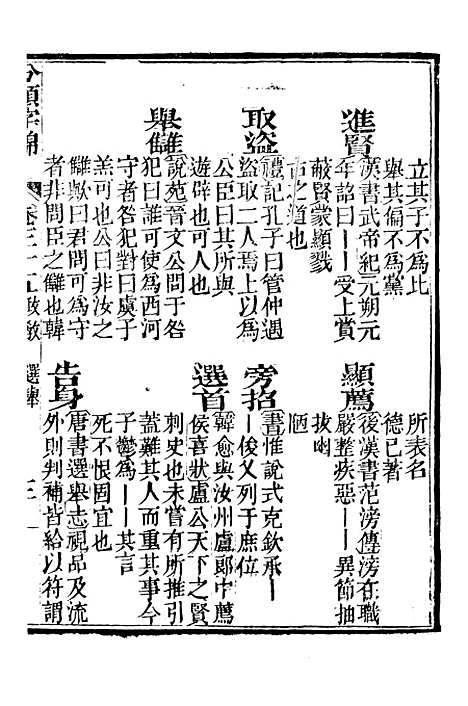 立其子不爲比
舉其偏不爲黨
進賢
漢書武帝紀元朔元
年詔曰――受上賞
蔽賢蒙顯戮
古之道也
取盜
禮記孔子曰管仲遇
盜取二人焉上以爲
公臣曰其所與
遊辟也可人也
舉讎
說苑晉文公問于咎
犯曰誰可使爲西河
守者咎犯對曰虞子
羔可也公曰非汝之
讎歟曰君問可爲守
者非問臣之讎也韓
所表名
德已著
顯薦
後漢書范滂傳滂在職
嚴整疾惡――異節抽
拔幽
陋
旁招
書惟說式克欽承―
―俊乂列于庶位
選首
韓愈與汝州盧郎中薦
侯喜狀盧公天下之賢
刺史也未嘗有所推引
蓋難其人而重其事今
子鬱爲――其言
死不恨固宜也
告身
唐書選舉志視品及流
外則判補皆給以符謂
分類字錦
卷三十五政教
選舉
三